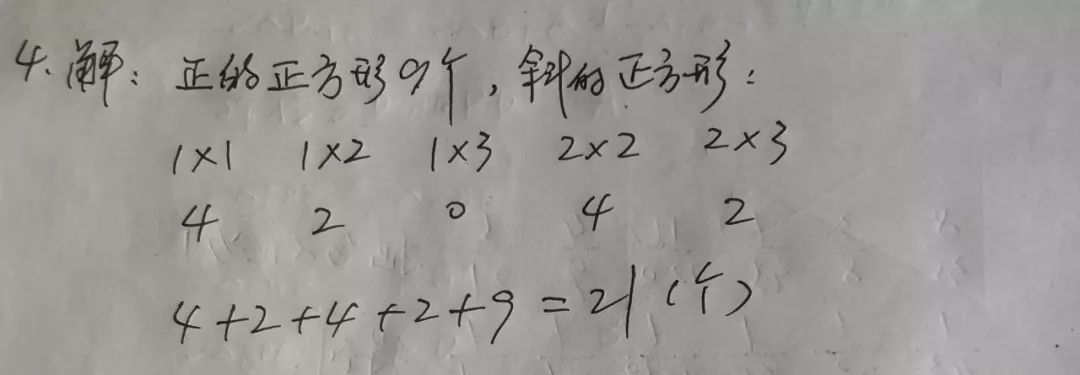 4.解：正的正方形9个，斜的正方形：
1×1 1×2 1×3 2×2 2×3
4 2 0 4 2
4+2+4+2+9=21（个）